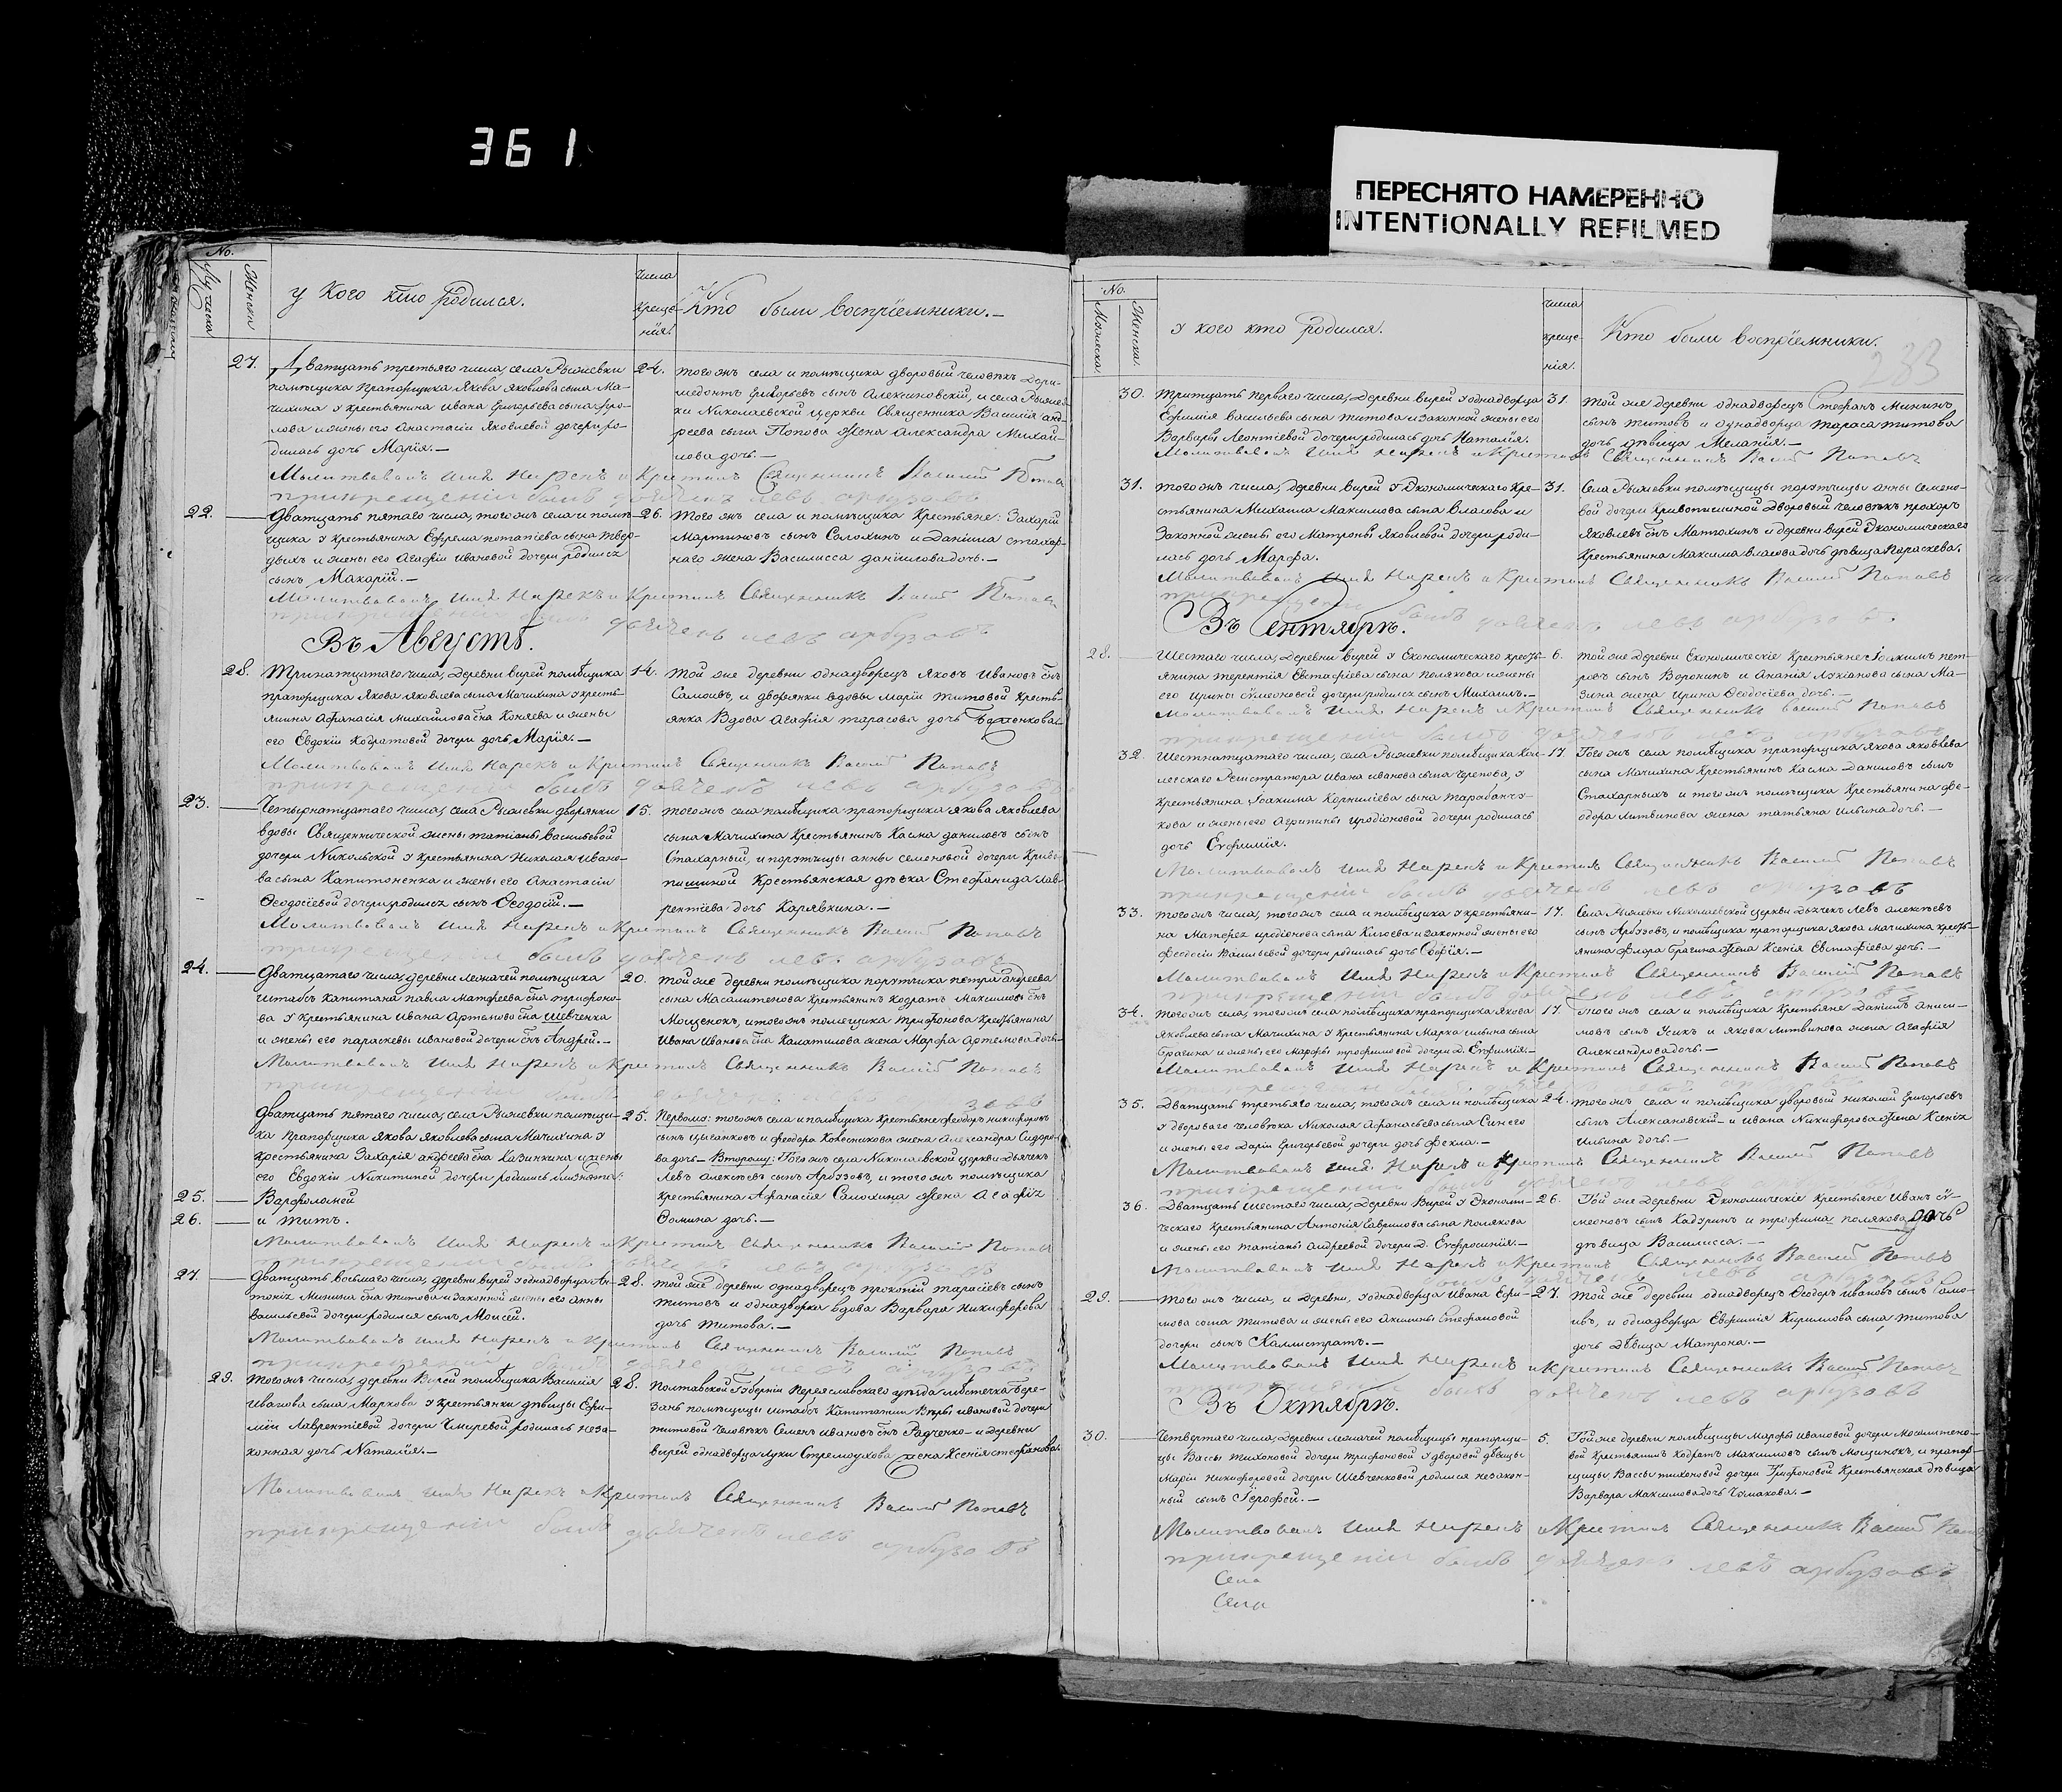 361
ПЕРЕСНЯТО НАМЕРЕННО
INTENTIONALLY REFILMED
No.
Мужеска
Женска
У кого кто родился.
числа
креще-
нїя.
Кто были воспрїемники.—
27.
Дватцать третьяго числа, села Рыжевки
помѣщика Прапорщика Якова Яковлева сына Ма-
чихина у крестьянина Ивана Григорьева сына
и жены его Анастасіи Яковлевой дочери ро-
дилась дочь Марїя.—
24.
тогожъ села и помѣщика дворовый человѣкъ Дори-
медонтъ Григорьевъ сынъ Алексановскїй, и села Рыжев-
ки Николаевской церкви Священника Василїя Ан-
дреева сына Попова жена Александра Михай-
лова дочь.—
Молитвовалъ имя нарекъ и крестилъ Священникъ Василий Поповъ
при крещении былъ дьячекъ левъ арбузовъ
22.
Дватцать пятаго числа, тогожъ села и помѣ-
щика у крестьянина Ефрема потапїева сына Твер-
дыхъ и жены его Агафїи Ивановой дочери родился
сынъ Макарїй.—
26.
Того жъ села и помѣщика Крестьяне: Захарїй
Мартиновъ сынъ Солохинъ и Данїила стахор-
наго жена Василисса данїилова дочь.—
Молитвовалъ имя нарекъ и крестилъ Священникъ Василий Поповъ
при крещении былъ дьячекъ левъ арбузовъ
Въ Августѣ.
28.
Тринатцатаго числа, деревни вирей помѣщика
прапорщика Якова Яковлева сына Мачихина у кресть-
янина Афанасїя Михайлова сна Коняева и жены
его Евдокїи Кодратовой дочери дочь Марїя.—
14.
той же деревни однадворецъ Яковъ Ивановъ снъ
Самоивъ, и дворянки вдовы Марїи Титовой Кресть-
янка Вдова Агафїя тарасова дочь
Молитвовалъ имя нарекъ и крестилъ Священникъ Василий Поповъ
при крещении былъ дьячекъ левъ арбузовъ
23.
Четырнатцатаго числа, села Рыжевки дворянки
вдовы Священнической жены татїаны Васильевой
дочери Никольской у крестьянина Николая Ивано-
ва сына Капитоненка и жены его Анастасїи
Ѳеодосїевой дочери родился сынъ Ѳеодосїй.—
15.
тогожъ села помѣщика прапорщика Якова Яковлева
сына Мачихина Крестьянинъ Касма даниловъ сынъ
Стахарный, и порутчицы анны семеновой дочери Криво-
пишиной Крестьянская дѣвка Стефанида лав-
рентїева дочь Карявкина.—
Молитвовалъ имя нарекъ и крестилъ Священникъ Василий Поповъ
при крещении былъ дьячекъ левъ арбузовъ
24.
Дватцатаго числа, деревни Лежачей помѣщика
Штабсъ Капитана павла Матфеева сна трифоно-
ва у крестьянина Ивана Артемова сна Шевченка
и жены его параскевы ивановой дочери снъ Андрей.—
20.
той же деревни помѣщика порутчика петра андреева
сына Масалитенова Крестьянинъ Кодратъ Максимовъ снъ
Мощенокъ, и тогожъ помещика трифонова Крестьянина
Ивана Иванова сна Халатилова жена Марфа Артемова дочь—
Молитвовалъ имя нарекъ и крестилъ Священникъ Василий Поповъ
Дватцать пятаго числа, села Рыжевки помѣщи-
ка прапорщика Якова Яковлева сына Мачихина у
крестьянина Захарїя андреева сна Казинкина и жены
его Евдокїи Никитиной дочери родились близнята:
25.
Варфоломей
26.
и Титъ.
25.
Первому: тогожъ села и помѣщика Крестьяне феодоръ никифоровъ
сынъ Цыганковъ и феодора Колесникова жена Александра Сидоро-
ва дочь— Второму: Тогожъ села Николаевской церкви Дьячекъ
Левъ Алексѣевъ сынъ Арбузовъ, и того жъ помѣщика
Крестьянина Афанасїя Салохина Жена Агафїя
Ѳомина дочь.—
Молитвовалъ имя нарекъ и крестилъ Священникъ Василий Поповъ
при крещении былъ дьячекъ левъ арбузовъ
27.
Дватцать восьмаго числа, деревни вирей у однадворца Ан-
тонїя Минина сна Титова и законной жены его Анны
Васильевой дочери родился сынъ Моисей.
28.
той же деревни однадворецъ прокопїй тарасїевъ сынъ
титовъ и однадворка вдова Варвара Никифорова
дочь титова.—
Молитвовалъ имя нарекъ и крестилъ Священникъ Василий Поповъ
при крещении былъ дьячекъ левъ арбузовъ
29.
Тогожъ числа, деревни Вирей помѣщика Василїя
Иванова сына Маркова у крестьянки дѣвицы Ефи-
мїи Лаврентїевой дочери Чмиревой родилась неза-
конная дочь Наталїя.—
28.
Полтавской Губернїи Переяславскаго уѣзда мѣстечка Бере-
зань помѣщицы штабсъ Капитанши Вѣры Ивановой дочери
титовой Человѣкъ Семенъ Ивановъ снъ Радченко— и деревни
вирей однадворца Луки Стремоухова жена Ксенїя стефанова.
Молитвовалъ имя нарекъ и крестилъ Священникъ Василий Поповъ
при крещении былъ дьячекъ левъ арбузовъ
No.
Мужеска.
Женска.
у кого кто родился.
числа
креще-
нїя.
Кто были воспрїемники.
283
30.
Тритцать перваго числа, деревни вирей у однадворца
Ефимїя Васильева сына Титова и законной жены его
Варвары Леонтїевой дочери родилась дочь Наталїя.
31.
той же деревни однадворецъ Стефанъ Мининъ
сынъ титовъ и однадворца Тараса титова
дочь дѣвица Меланїя.—
Молитвовалъ имя нарекъ и крестилъ Священникъ Василий Поповъ
31.
тогожъ числа, деревни вирей у Экономическаго Кре-
стьянина Михаила Максимова сына Власова и
Законной жены его Матроны Яковлевой дочери роди-
лась дочь Марфа.
31.
Села Рыжевки помѣщицы порутчицы анны Семено-
вой дочери Кривопишиной Дворовый человѣкъ прохоръ
Яковлевъ снъ Матюхинъ и деревни вирей Экономическаго
Крестьянина Максима власова дочь дѣвица Параскева.
Молитвовалъ имя нарекъ и крестилъ Священникъ Василий Поповъ
при крещении былъ дьячекъ левъ арбузовъ.
Въ Сентябрѣ.
28.
Шестаго числа, Деревни вирей у Економическаго кресть-
янина терентїя Евстафїева сына полякова и жены
его Ирины сѵмеоновой дочери родился сынъ Михаилъ.—
6.
той же Деревни Економическїе Крестьяне Їоакимъ пет-
ровъ сынъ Воронинъ и Ананїя Лукїанова сына Ма-
зина жена Ирина Ѳеодосїева дочь.—
Молитвовалъ имя нарекъ и крестилъ Священникъ Василий Поповъ
при крещении былъ дьячекъ левъ арбузовъ
32.
Шестнатцатаго числа, села Рыжевки помѣщика Кол-
лежскаго Регистратора Ивана иванова сына Черепова, у
Крестьянина Їоакима Корнилїева сына Тарабанчу-
кова и жены его Агрипины Иродїоновой дочери родилась
дочь Евфимїя.
17.
Тогожъ села помѣщика прапорщика Якова Яковлева
сына Мачихина Крестьянинъ Касма Даниловъ сынъ
Стахарныхъ и тогожъ помѣщика Крестьянина фе-
одора литвинова жена татьяна Ильина дочь.—
Молитвовалъ имя нарекъ и крестилъ Священникъ Василий Поповъ
при крещении былъ дьячекъ левъ арбузовъ
33.
тогожъ числа, тогожъ села и помѣщика у крестьяни-
на Матфея иродїонова сына и законной жены его
Феодосїи Васильевой дочери родилась дочь Софїя.—
17.
Села Рыжевки Николаевской церкви Дьячекъ Левъ Алексѣевъ
сынъ Арбузовъ, и помѣщика прапорщика Якова Мачихина кресть-
янина Флора Брагина жена Ксенїя Евстафїева дочь.—
Молитвовалъ имя нарекъ и крестилъ Священникъ Василий Поповъ
при крещении былъ дьячекъ левъ арбузовъ
34.
тогожъ села, тогожъ села помѣщика прапорщика Якова
Яковлева сына Мачихина у Крестьянина Марка ильина сына
Брагина и жены его Марфы трофимовой дочери д. Евфимїя.—
17.
того жъ села и помѣщика Крестьяне Данїилъ аким-
мовъ сынъ Усикъ и Якова литвинова жена Агафїя
Александрова дочь.—
Молитвовалъ имя нарекъ и крестилъ Священникъ Василий Поповъ
35.
Дватцать третьяго числа, тогожъ села и помѣщика
у Дворового человѣка Николая Афанасьева сына
и жены его Дарїи Григорьевой дочери дочь Фекла.—
24.
тогожъ села и помѣщика дворовый Николай Григорьевъ
сынъ Алексановскїй— и Ивана Никифорова Жена Ксенїя
Ильина дочь.—
Молитвовалъ имя нарекъ и крестилъ Священникъ Василий Поповъ
при крещении былъ дьячекъ левъ
36.
Дватцать шестаго числа, Деревни Вирей у Экономи-
ческаго Крестьянина Антонїя Гаврилова сына Полякова
и жены его татїаны Андреевой дочери д. Евфросинїя.—
26.
Той же Деревни Экономическїе Крестьяне Иванъ сѵ-
меоновъ сынъ Кадуринъ и трофима полякова дочь
дѣвица Василисса.—
Молитвовалъ имя нарекъ и крестилъ Священникъ Василий Поповъ
былъ дьячекъ левъ арбузовъ
29.
того жъ числа, и Деревни, у однадворца Ивана Ефи-
мова сына Титова и жены его Акилины Стефановой
дочери сынъ Каллистратъ.—
27.
Той же деревни однадворецъ Ѳеодоръ Ивановъ сынъ Само-
ивъ, и однадворца Евфимїя Кирилова сына титова
дочь Дѣвица Матрона.—
Молитвовалъ имя нарекъ и крестилъ Священникъ Василий Поповъ
при крещении былъ дьячекъ левъ арбузовъ
Въ Октябрѣ.
30.
Четвертаго числа, Деревни лежачей помѣщицы прапорщи-
цы Вассы Тихоновой дочери Трифоновой у дворовой дѣвицы
Марїи Никифоровой дочери Шевченковой родился незакон-
ный сынъ Їерофей.—
5.
Той же деревни помѣщицы Марфы Ивановой дочери Мосолитено-
вой Крестьянинъ Кодратъ Максимовъ сынъ Мощинокъ, и прапор-
щицы Вассы тихоновой дочери Трифоновой Крестьянская дѣвица
Варвара Максимова дочь Чумакова.—
Молитвовалъ имя нарекъ и крестилъ Священникъ Василий Поповъ
при крещении былъ дьячекъ левъ арбузовъ
Села
Села